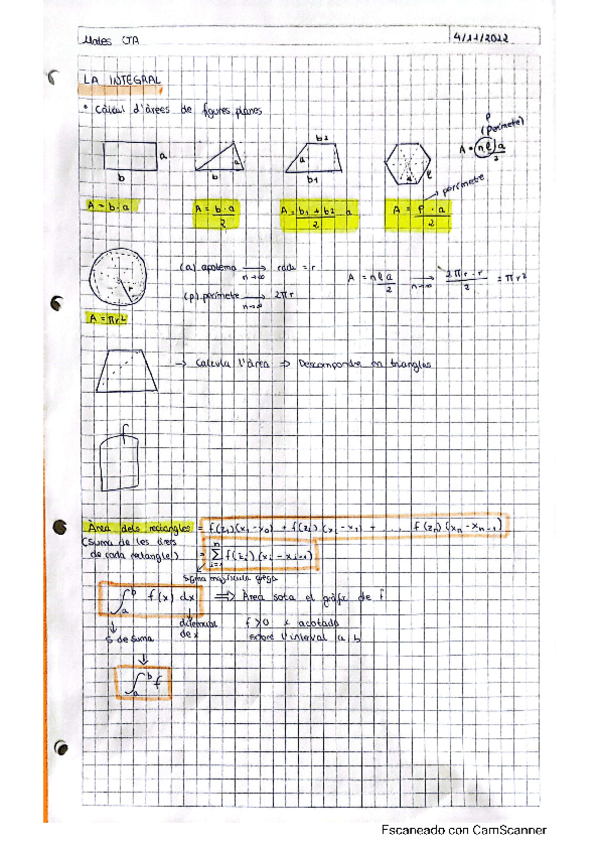 Mates CTA 4/11/2022
LA INTEGRAL
• Càlcul d'àrees de figures planes
P
(Perímetre)
A = (n l) a / 2
b a
b a
b2 a b1
a l
perímetre
A = b · a
A = b · a / 2
A = b1 + b2 · a / 2
A = P · a / 2
(a) apotema ⟶ n→∞ radi = r
(p) perímetre ⟶ n→∞ 2πr
A = n l a / 2 ⟶ n→∞ 2πr · r / 2 = πr²
r
A = πr²
→ Calcula l'àrea ⇒ Descompondre en triangles
f
Àrea dels rectangles = f(z1)(x1-x0) + f(zi)(xi-x1) + ... f(zn)(xn-xn-1)
(Suma de les àrees
de cada rectangle) = n ∑ i=1 f(zi)(xi - xi-1)
sigma majúscula grega
∫ a b f(x) dx ⟹ Àrea sota el gràfic de f
S de suma
diferencial de x
f>0 i acotada
sobre l'interval a, b
∫ a b f
Escaneado con CamScanner